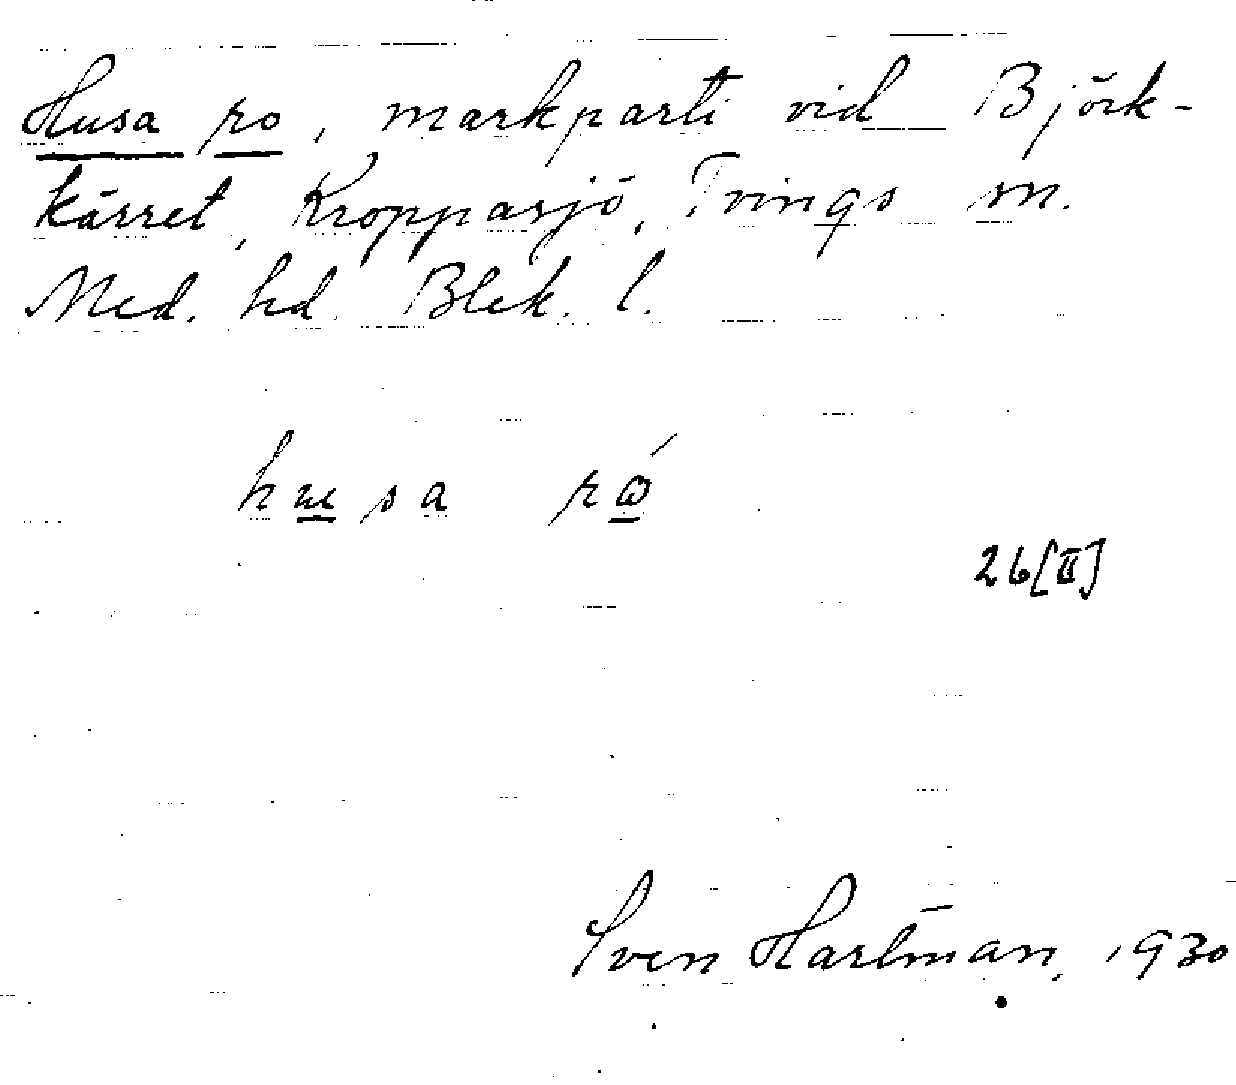 Husa ro, markparti vid Björk-
kärret, Kropparsjö, Tvings sn.
Med. hd. Blek. l.
husa ró
26[II]
Sven Hartman, 1930